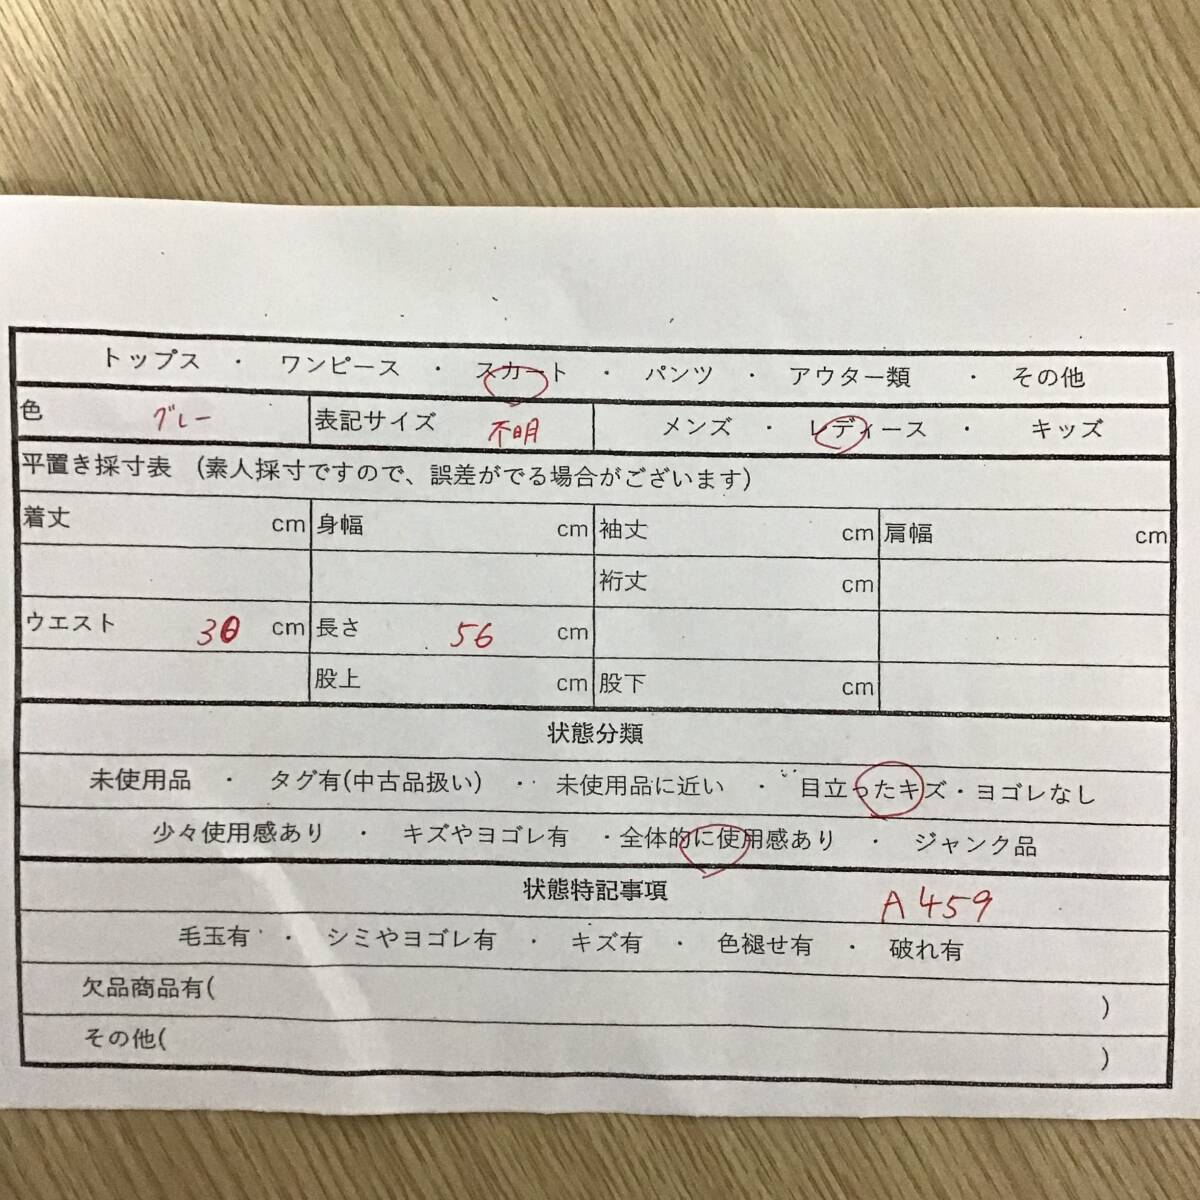 トップス ・ ワンピース ・ スカート ・ パンツ ・ アウター類 ・ その他
色 グレー 表記サイズ 不明 メンズ ・ レディース ・ キッズ
平置き採寸表 (素人採寸ですので、誤差がでる場合がございます)
着丈 cm 身幅 cm 袖丈 cm 肩幅 cm
裄丈 cm
ウエスト 30 cm 長さ 56 cm
股上 cm 股下 cm
状態分類
未使用品 ・ タグ有(中古品扱い) ・・ 未使用品に近い ・ 目立ったキズ・ヨゴレなし
少々使用感あり ・ キズやヨゴレ有 ・全体的に使用感あり ・ ジャンク品
状態特記事項 A459
毛玉有 ・ シミやヨゴレ有 ・ キズ有 ・ 色褪せ有 ・ 破れ有
欠品商品有( )
その他( )